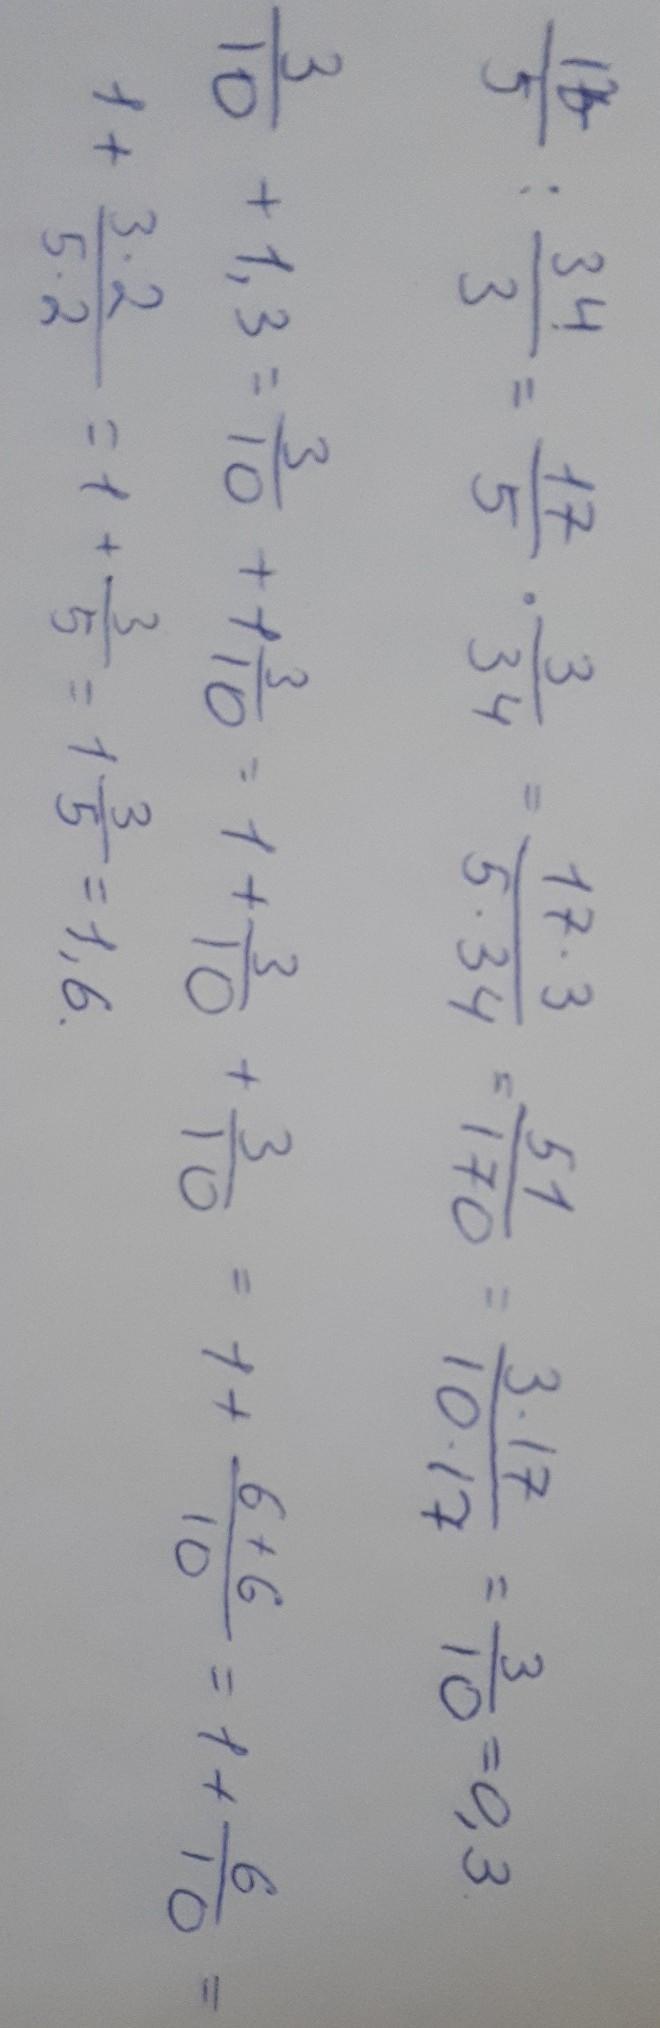 17/5 : 34/3 = 17/5 · 3/34 = 17·3/5·34 = 51/170 = 3·17/10·17 = 3/10 = 0,3.
3/10 + 1,3 = 3/10 + 1 3/10 = 1 + 3/10 + 3/10 = 1 + 6+6/10 = 1 + 6/10 =
1 + 3·2/5·2 = 1 + 3/5 = 1 3/5 = 1,6.